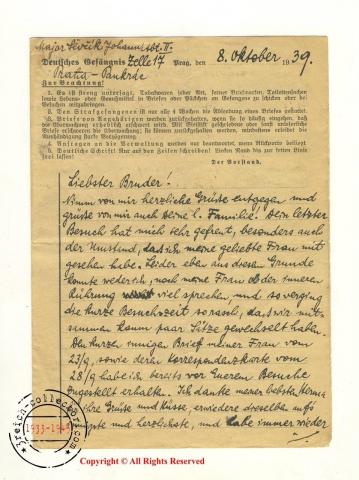 Major Sivčik Johann Abt. II.
Deutsches Gefängnis Zelle 17 Prag, den 8. Oktober 1939.
Praha – Pankrác
Zur Beachtung!
1. Es ist streng untersagt, Tabakwaren jeder Art, ferner Briefmarken, Toilettesachen
sowie Lebens- oder Genußmittel in Briefen oder Päckchen an Gefangene zu schicken oder bei
Besuchen mitzubringen.
2. Den Strafgefangenen ist nur alle 4 Wochen die Absendung eines Briefes gestattet.
3. Briefe von Angehörigen werden zurückgehalten, wenn sie so häufig eingehen, daß
die Überwachung erheblich erschwert wird. Mit Bleistift geschriebene oder sonst unleserliche
Briefe werden zurückgehalten, mindestens erleidet die
Aushändigung starke Verzögerung.
4. Anfragen an die Verwaltung werden nur beantwortet, wenn Rückporto beiliegt
5. Deutliche Schrift! Nur auf den Zeilen schreiben! Linken Rand bis zur fetten Linie
frei lassen!
Der Vorstand.
Liebster Bruder!
Nimm von mir herzliche Grüße entgegen und
grüße von mir auch Deine l. Familie. Dein letzter
Besuch hat mich sehr gefreut, besonders auch
der Umstand, dass ich meine geliebte Frau mit
gesehen habe. Leider eben aus diesem Grunde
konnte weder ich, noch meine Frau ob der inneren
Rührung viel sprechen, und so verging
die kurze Besuchszeit so rasch, dass wir mit-
summen kaum paar Sätze gewechselt haben.
Den kurzen innigen Brief meiner Frau vom
23/9, sowie deren Korrespondenzkarte vom
28/9 habe ich bereits vor Euerem Besuche
zugestellt erhalten. Ich danke meiner liebsten Herma
ihre Grüße und Küsse, erwidere dieselben aufs
und herzlichste, und habe immer wieder
3reich-collector.com
1933-1945
Copyright © All Rights Reserved